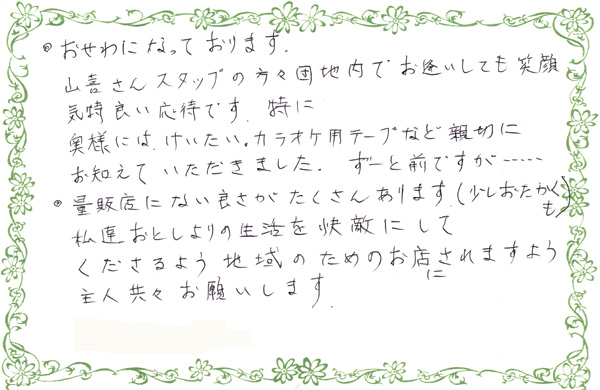 ◎ おせわになっております.
山喜さんスタッフの方々団地内でお逢いしても笑顔
気特良い応待です. 特に
奥様には、けいたい、カラオケ用テープなど親切に
お知えていただきました. ずーと前ですが……
◎ 量販店にない良さがたくさんあります。(少しおたかくも)
私達おとしよりの生活を快敵にして
くださるよう地域のためのお店にされますよう
主人共々お願いします.